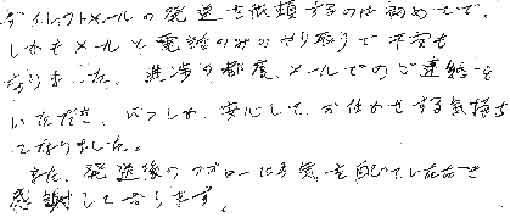 ダイレクトメールの発送を依頼するのは初めてで、
しかもメールと電話のみのやり取りで不安も
ありました。進捗の都度、メールでのご連絡を
いただき、いつしか、安心して、お任せする気持ち
になりました。
また、発送後のフォローにも気を配っていただき
感謝しております。